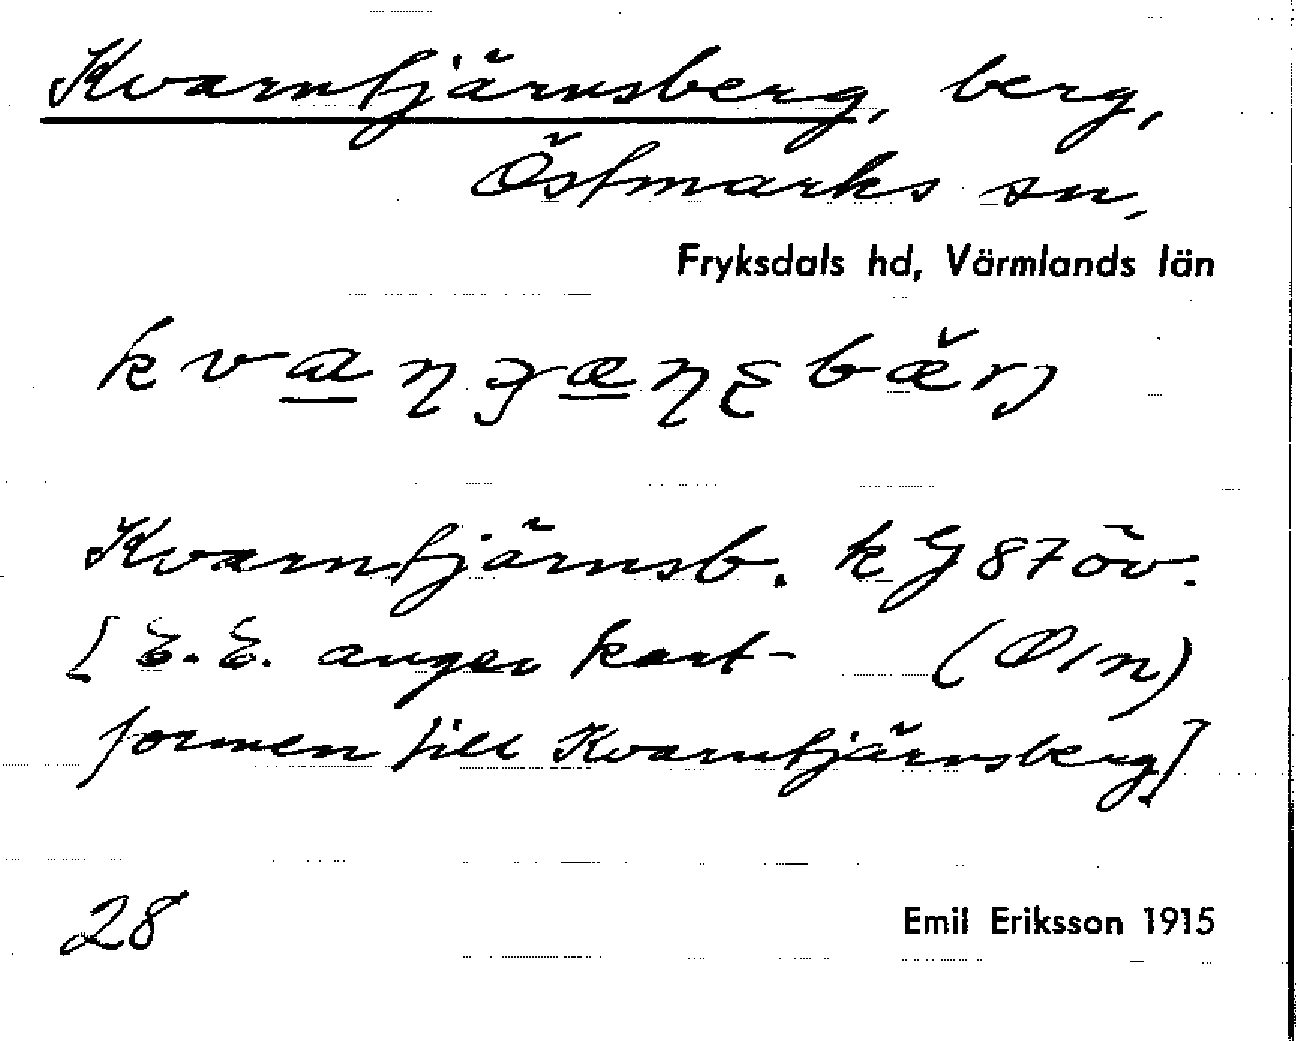 Kvarntjärnsberg, berg,
Östmarks sn,
Fryksdals hd, Värmlands län
Kvarntjärnsb. k G 87 öv.
[E.E. anger kart- (Ö/n)
formen till Kvarntjärnsberg]
28
Emil Eriksson 1915